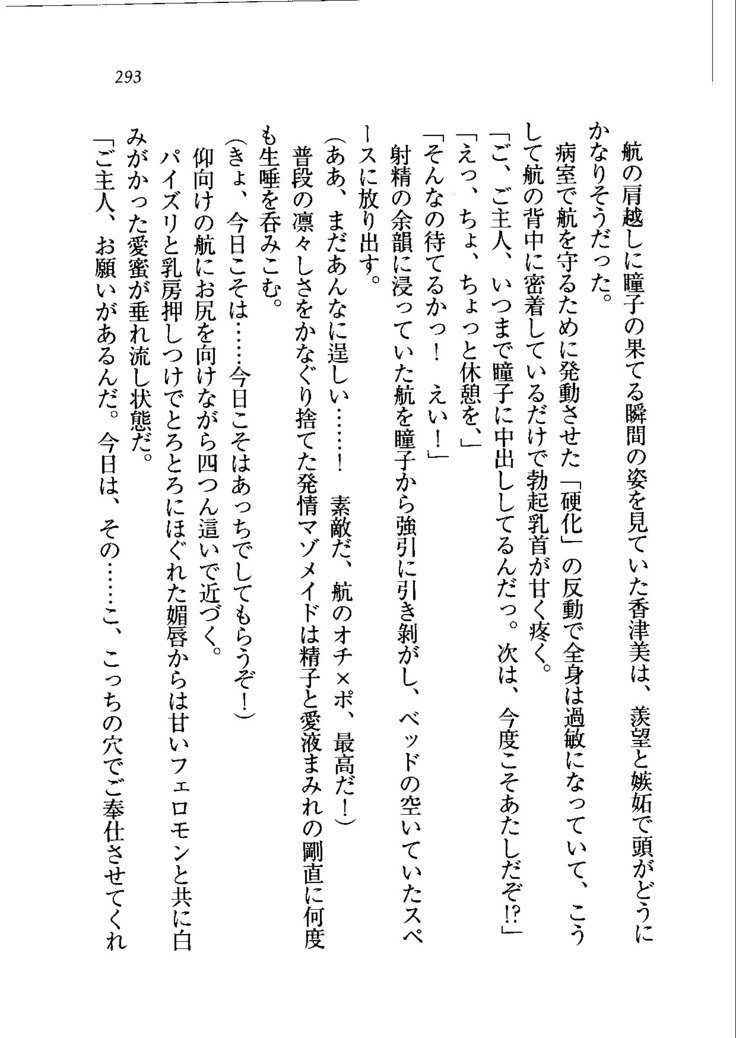 293
航の肩越しに瞳子の果てる瞬間の姿を見ていた香津美は、羨望と嫉妬で頭がどうに
かなりそうだった。
病室で航を守るために発動させた「硬化」の反動で全身は過敏になっていて、こう
して航の背中に密着しているだけで勃起乳首が甘く疼く。
「ご、ご主人、いつまで瞳子に中出ししてるんだっ。次は、今度こそあたしだぞ!?」
「えっ、ちょ、ちょっと休憩を、」
「そんなの待てるかっ！　えい！」
射精の余韻に浸っていた航を瞳子から強引に引き剝がし、ベッドの空いていたスペ
ースに放り出す。
（ああ、まだあんなに逞しい……！　素敵だ、航のオチ×ポ、最高だ！）
普段の凛々しさをかなぐり捨てた発情マゾメイドは精子と愛液まみれの剛直に何度
も生唾を呑みこむ。
（きょ、今日こそは……今日こそはあっちでしてもらうぞ！）
仰向けの航にお尻を向けながら四つん這いで近づく。
パイズリと乳房押しつけでとろとろにほぐれた媚唇からは甘いフェロモンと共に白
みがかった愛蜜が垂れ流し状態だ。
「ご主人、お願いがあるんだ。今日は、その……こ、こっちの穴でご奉仕させてくれ